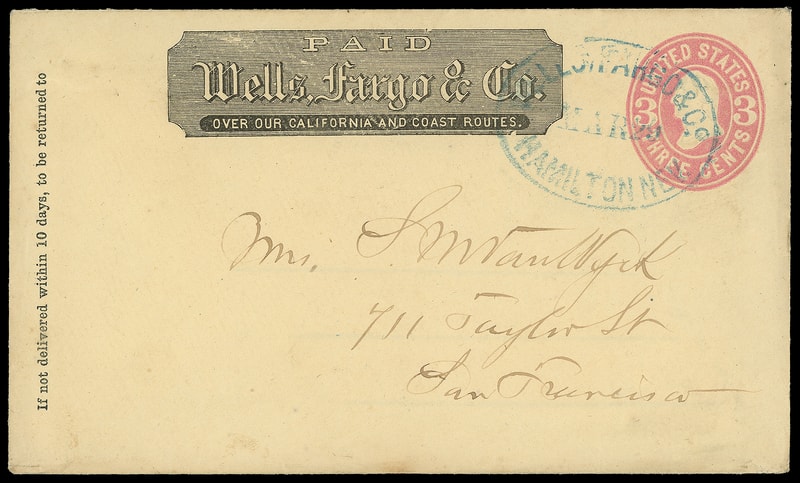 PAID
Wells, Fargo & Co.
OVER OUR CALIFORNIA AND COAST ROUTES.
WELLS, FARGO & Co.
MAR 29
HAMILTON NEV.
UNITED STATES
3 3
THREE CENTS
If not delivered within 10 days, to be returned to
Mrs. S M Van Wyck
711 Taylor St
San Francisco